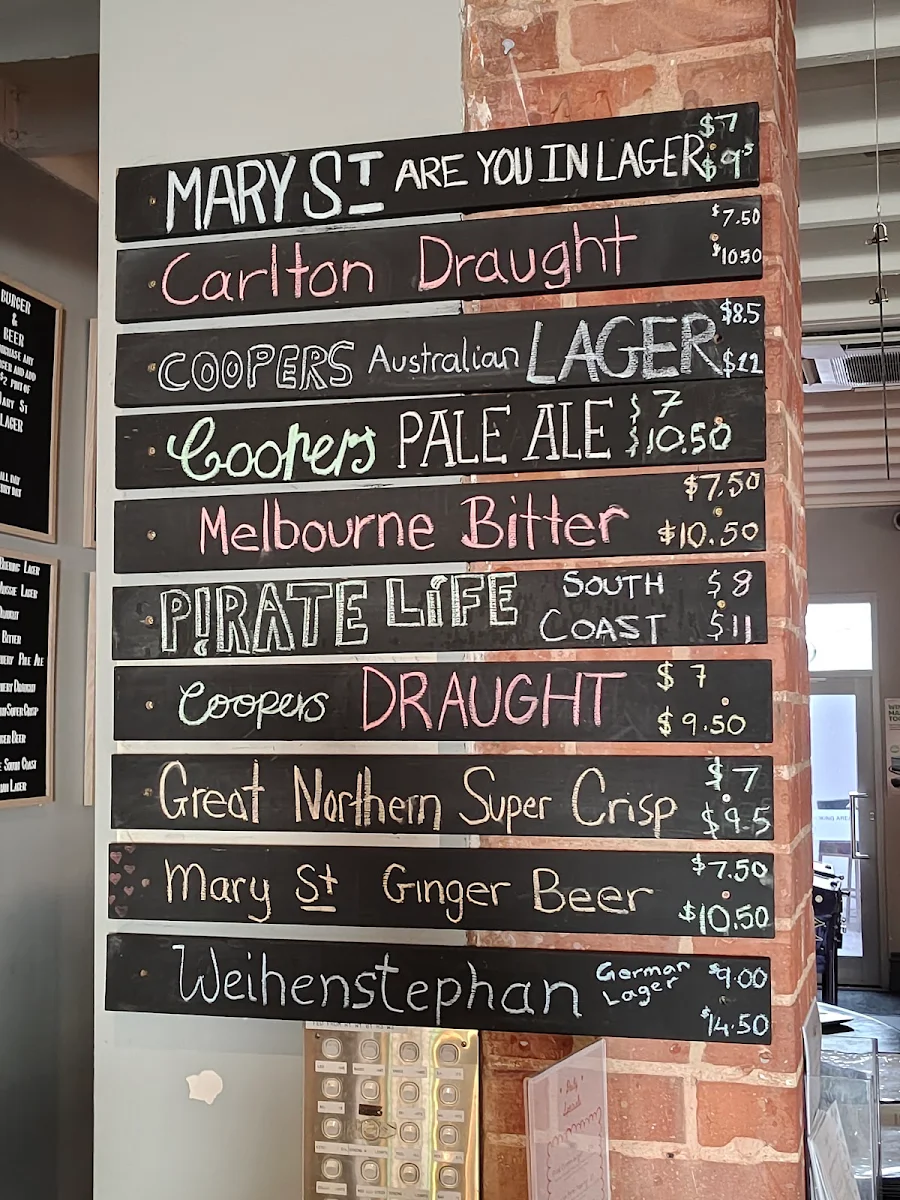 MARY ST ARE YOU IN LAGER $7
$9⁵
Carlton Draught $7.50
$10.50
COOPERS Australian LAGER $8.5
$11
Coopers PALE ALE $7
$10.50
Melbourne Bitter $7.50
$10.50
P!RATE LiFE SOUTH $8
COAST $11
Coopers DRAUGHT $7
$9.50
Great Northern Super Crisp $7
$9.5
Mary St Ginger Beer $7.50
$10.50
Weihenstephan German $9.00
Lager
$14.50
BURGER
&
BEER
$2 PINT OF
MARY ST
LAGER
ALL DAY
BITTER
PALE ALE
SUPER CRISP
BEER
SOUTH COAST
LAGER